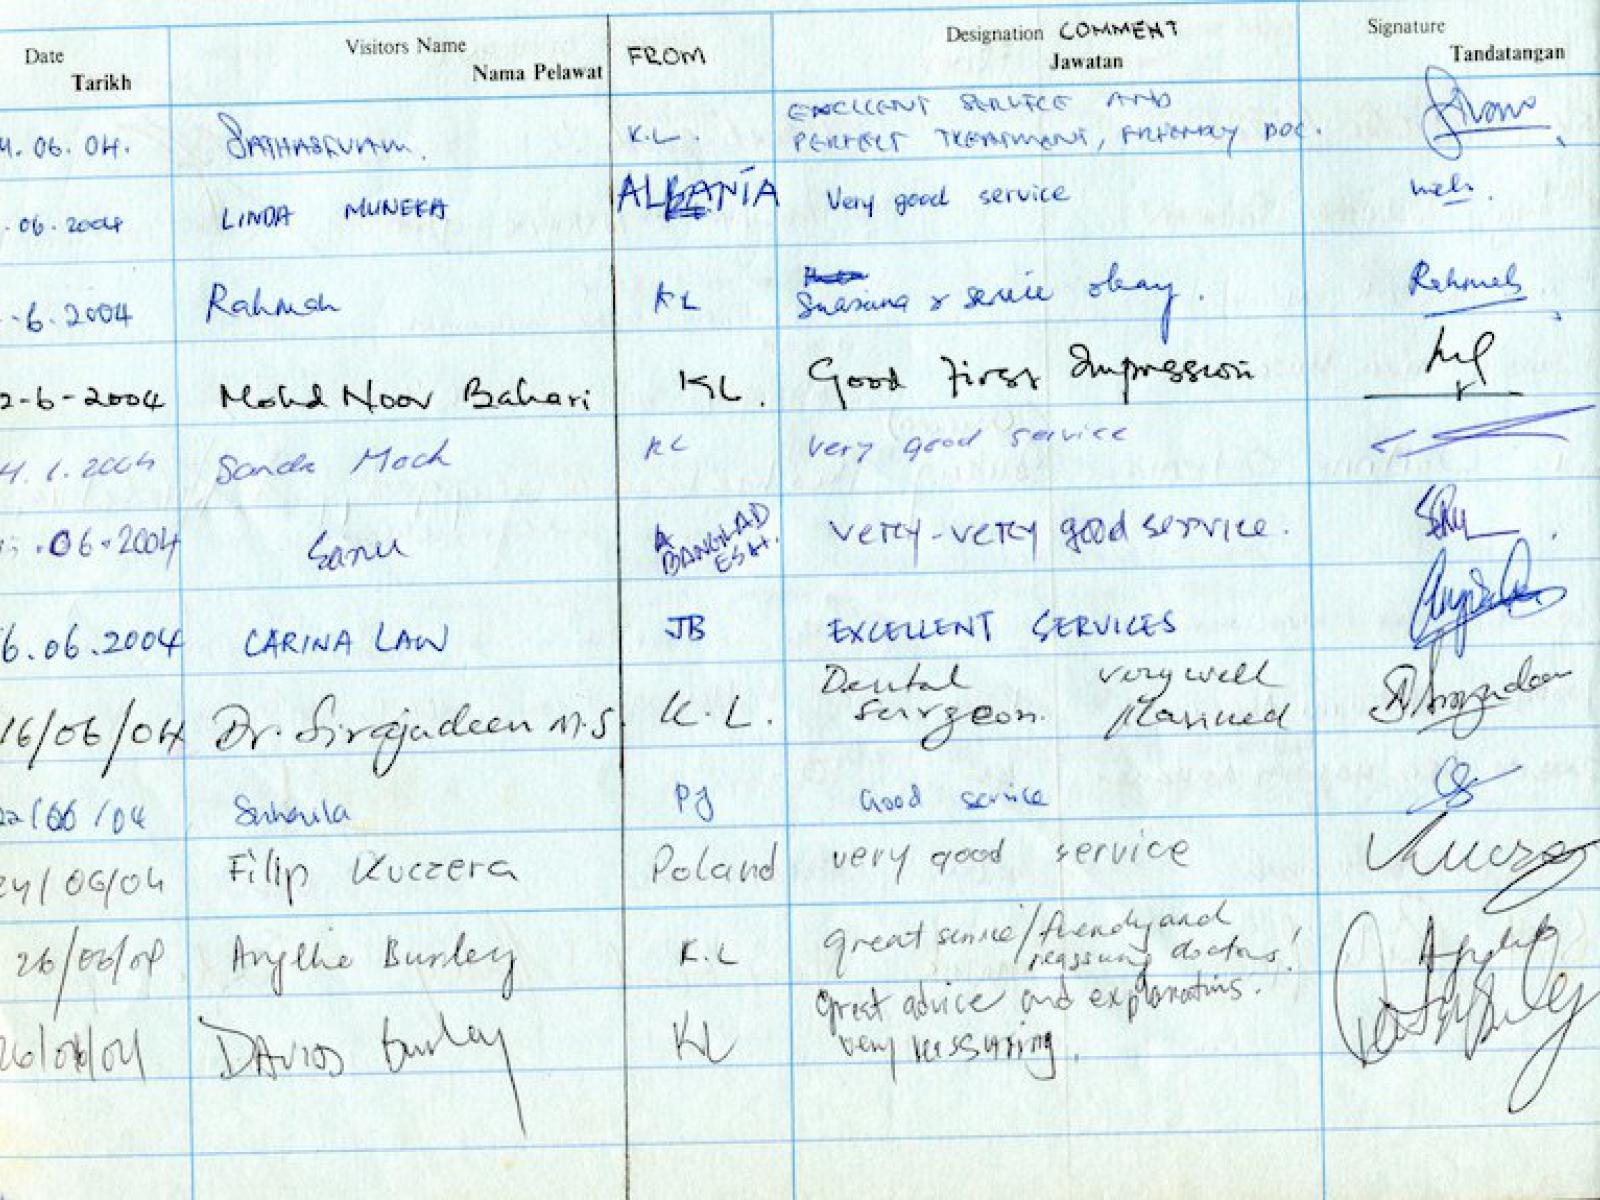 Date Visitors Name FROM Designation COMMENT Signature
Tarikh Nama Pelawat Jawatan Tandatangan
EXCELLENT SERVICE AND
.06.04. K.L. PERFECT TREATMENT, FRIENDLY DOC.
.06.2004 LINDA MUNEKA ALBANIA Very good service
-6-2004 Rahmah KL Suasana & service okay. Rahmah
2-6-2004 Mohd Noor Bahari KL. Good First Impression
KL very good service
.06.2004 Sanu BANGLAD
ESH. very-very good service.
6.06.2004 CARINA LAW JB EXCELLENT SERVICES
16/06/04 Dr. Sirajadeen M.S. K.L. Dental very well
Surgeon. planned
22/06/04 Suhaila PJ Good service
24/06/04 Filip Kuczera Poland very good service
26/06/04 Burley K.L great service/friendly and
reassuring doctors!
26/06/04 Burley KL great advice and explanations.
very reassuring.